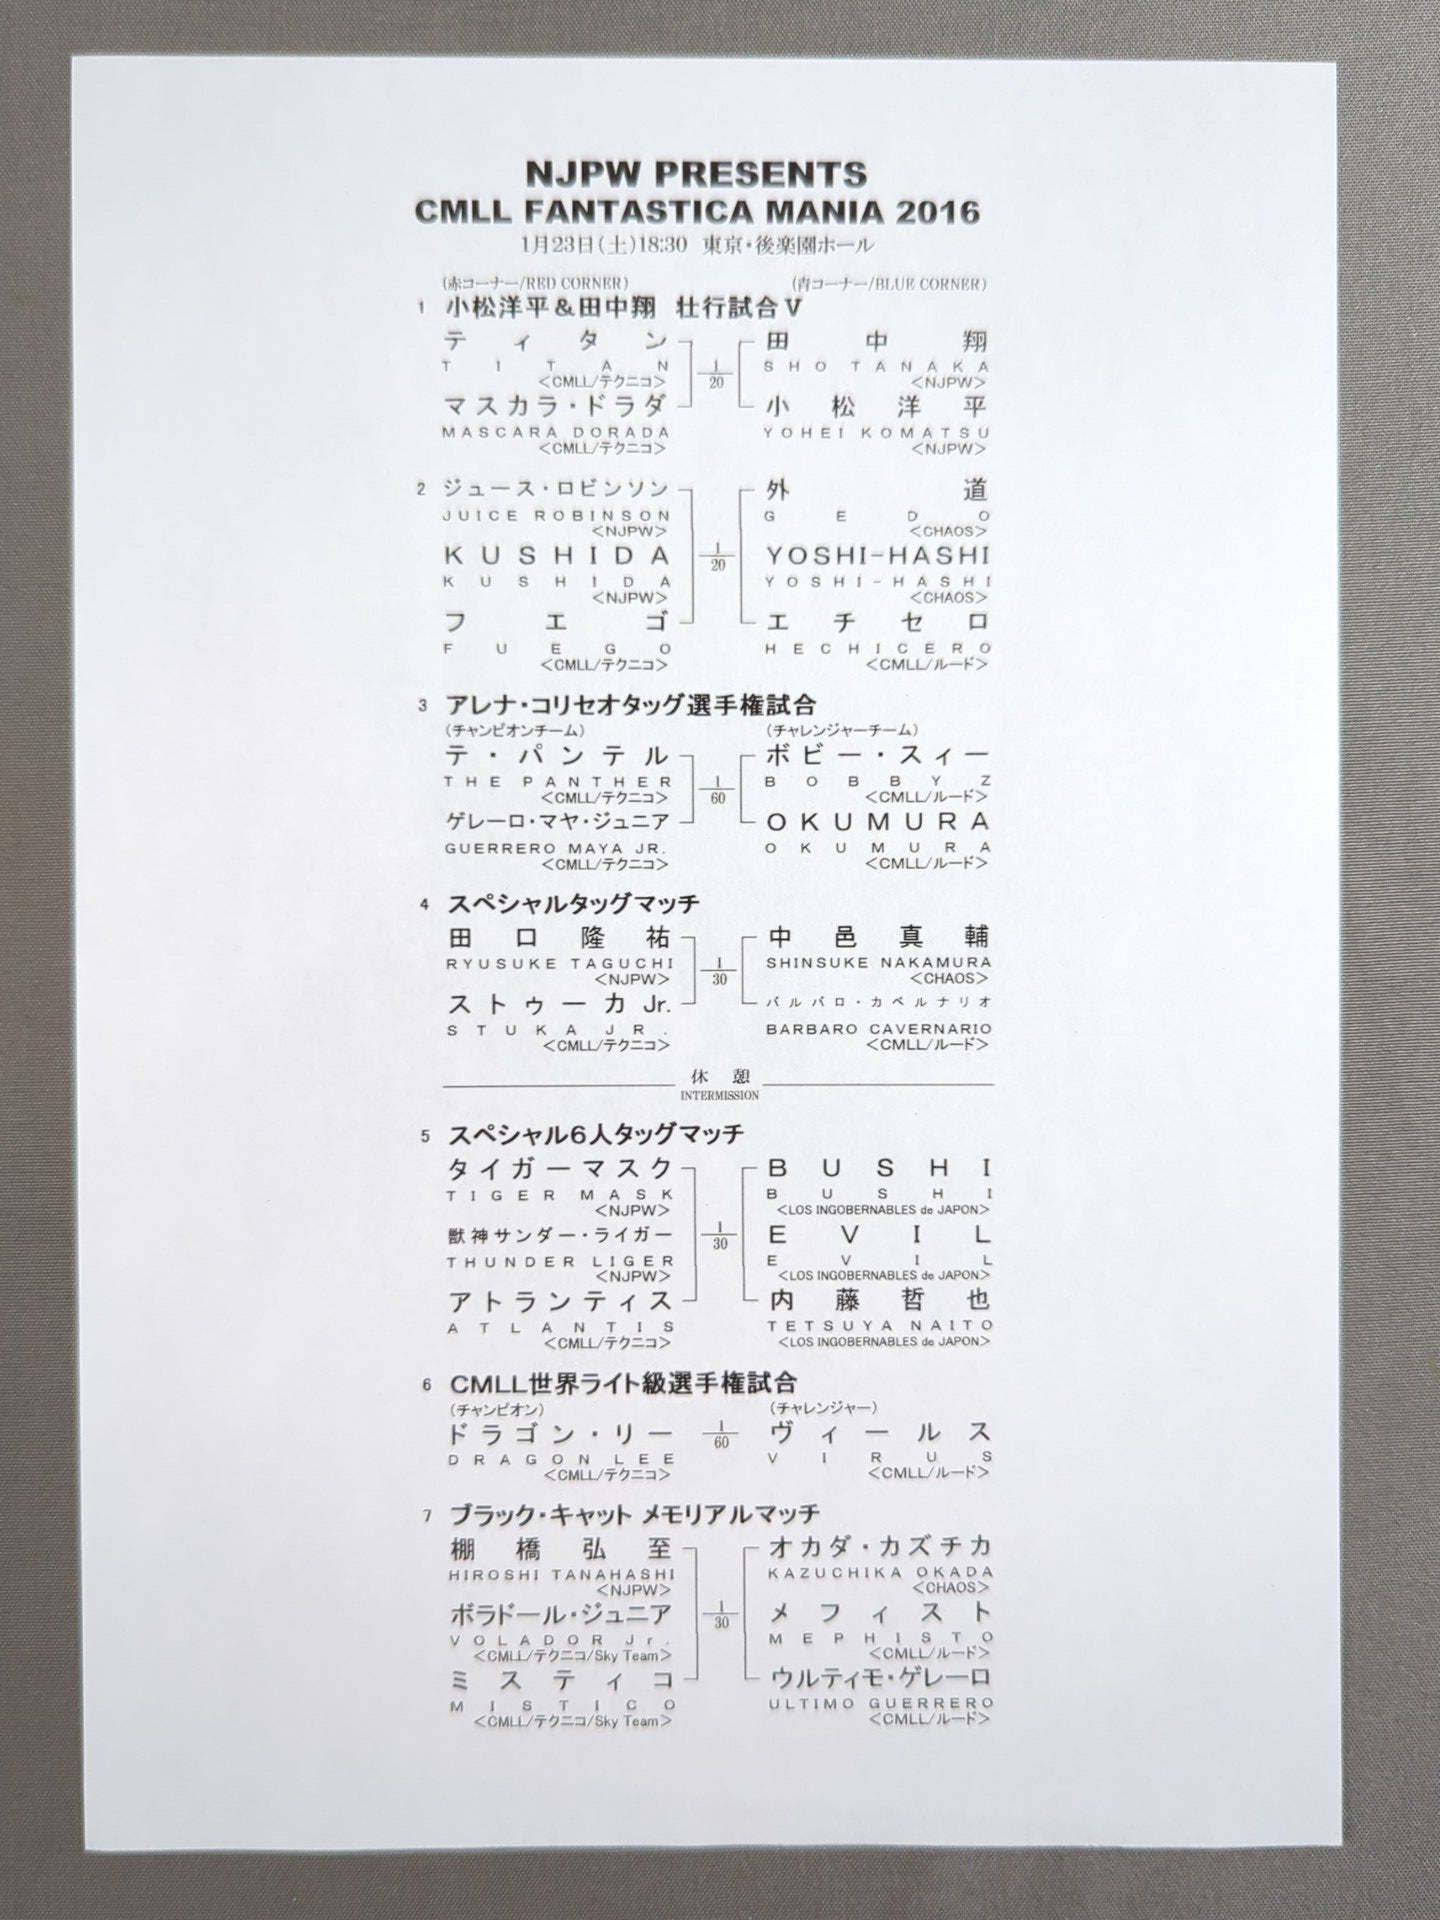 NJPW PRESENTS
CMLL FANTASTICA MANIA 2016
1月23日(土)18:30 東京・後楽園ホール
(赤コーナー/RED CORNER) (青コーナー/BLUE CORNER)
1 小松洋平&田中翔 壮行試合Ⅴ
ティタン 田中翔
TITAN 1/20 SHO TANAKA
<CMLL/テクニコ> <NJPW>
マスカラ・ドラダ 小松洋平
MASCARA DORADA YOHEI KOMATSU
<CMLL/テクニコ> <NJPW>
2 ジュース・ロビンソン 外道
JUICE ROBINSON GEDO
<NJPW> <CHAOS>
KUSHIDA 1/20 YOSHI-HASHI
KUSHIDA YOSHI-HASHI
<NJPW> <CHAOS>
フエゴ エチセロ
FUEGO HECHICERO
<CMLL/テクニコ> <CMLL/ルード>
3 アレナ・コリセオタッグ選手権試合
(チャンピオンチーム) (チャレンジャーチーム)
テ・パンテル ボビー・スィー
THE PANTHER 1/60 BOBBY Z
<CMLL/テクニコ> <CMLL/ルード>
ゲレーロ・マヤ・ジュニア OKUMURA
GUERRERO MAYA JR. OKUMURA
<CMLL/テクニコ> <CMLL/ルード>
4 スペシャルタッグマッチ
田口隆祐 中邑真輔
RYUSUKE TAGUCHI 1/30 SHINSUKE NAKAMURA
<NJPW> <CHAOS>
ストゥーカJr. バルバロ・カベルナリオ
STUKA JR. BARBARO CAVERNARIO
<CMLL/テクニコ> <CMLL/ルード>
休憩
INTERMISSION
5 スペシャル6人タッグマッチ
タイガーマスク BUSHI
TIGER MASK BUSHI
<NJPW> <LOS INGOBERNABLES de JAPON>
獣神サンダー・ライガー 1/30 EVIL
THUNDER LIGER EVIL
<NJPW> <LOS INGOBERNABLES de JAPON>
アトランティス 内藤哲也
ATLANTIS TETSUYA NAITO
<CMLL/テクニコ> <LOS INGOBERNABLES de JAPON>
6 CMLL世界ライト級選手権試合
(チャンピオン) (チャレンジャー)
ドラゴン・リー 1/60 ヴィールス
DRAGON LEE VIRUS
<CMLL/テクニコ> <CMLL/ルード>
7 ブラック・キャット メモリアルマッチ
棚橋弘至 オカダ・カズチカ
HIROSHI TANAHASHI KAZUCHIKA OKADA
<NJPW> <CHAOS>
ボラドール・ジュニア 1/30 メフィスト
VOLADOR Jr. MEPHISTO
<CMLL/テクニコ/Sky Team> <CMLL/ルード>
ミスティコ ウルティモ・ゲレーロ
MISTICO ULTIMO GUERRERO
<CMLL/テクニコ/Sky Team> <CMLL/ルード>